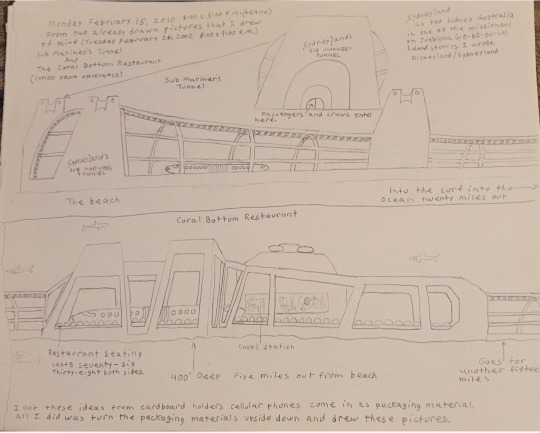 Monday February 15, 2010
From two already drawn pictures that I drew
of mine (Tuesday February 26, 2002 8:00 & 9:00 P.M.)
Sub Mariner's Tunnel
And
The Coral Bottom Restaurant
(copied from originals)
Sub Mariner's
Tunnel
Sydneyland's
Sub Mariner's
Tunnel
Passengers and crews enter
here.
Sydneyland
as too Sydney Australia
in one of the missionary
Island stories I wrote.
Disneyland/Sydneyland
Sydneyland's
Sub Mariner's
Tunnel
The beach
Into the surf into the
ocean twenty miles out
Coral Bottom Restaurant
Restaurant seating
seats seventy-six
Thirty-eight both sides.
Cooks Station
400' Deep Five miles out from beach
Goes for
another fifteen
miles
I got these ideas from cardboard holders cellular phones come in as packaging material.
All I did was turn the packaging materials upside down and drew these pictures.